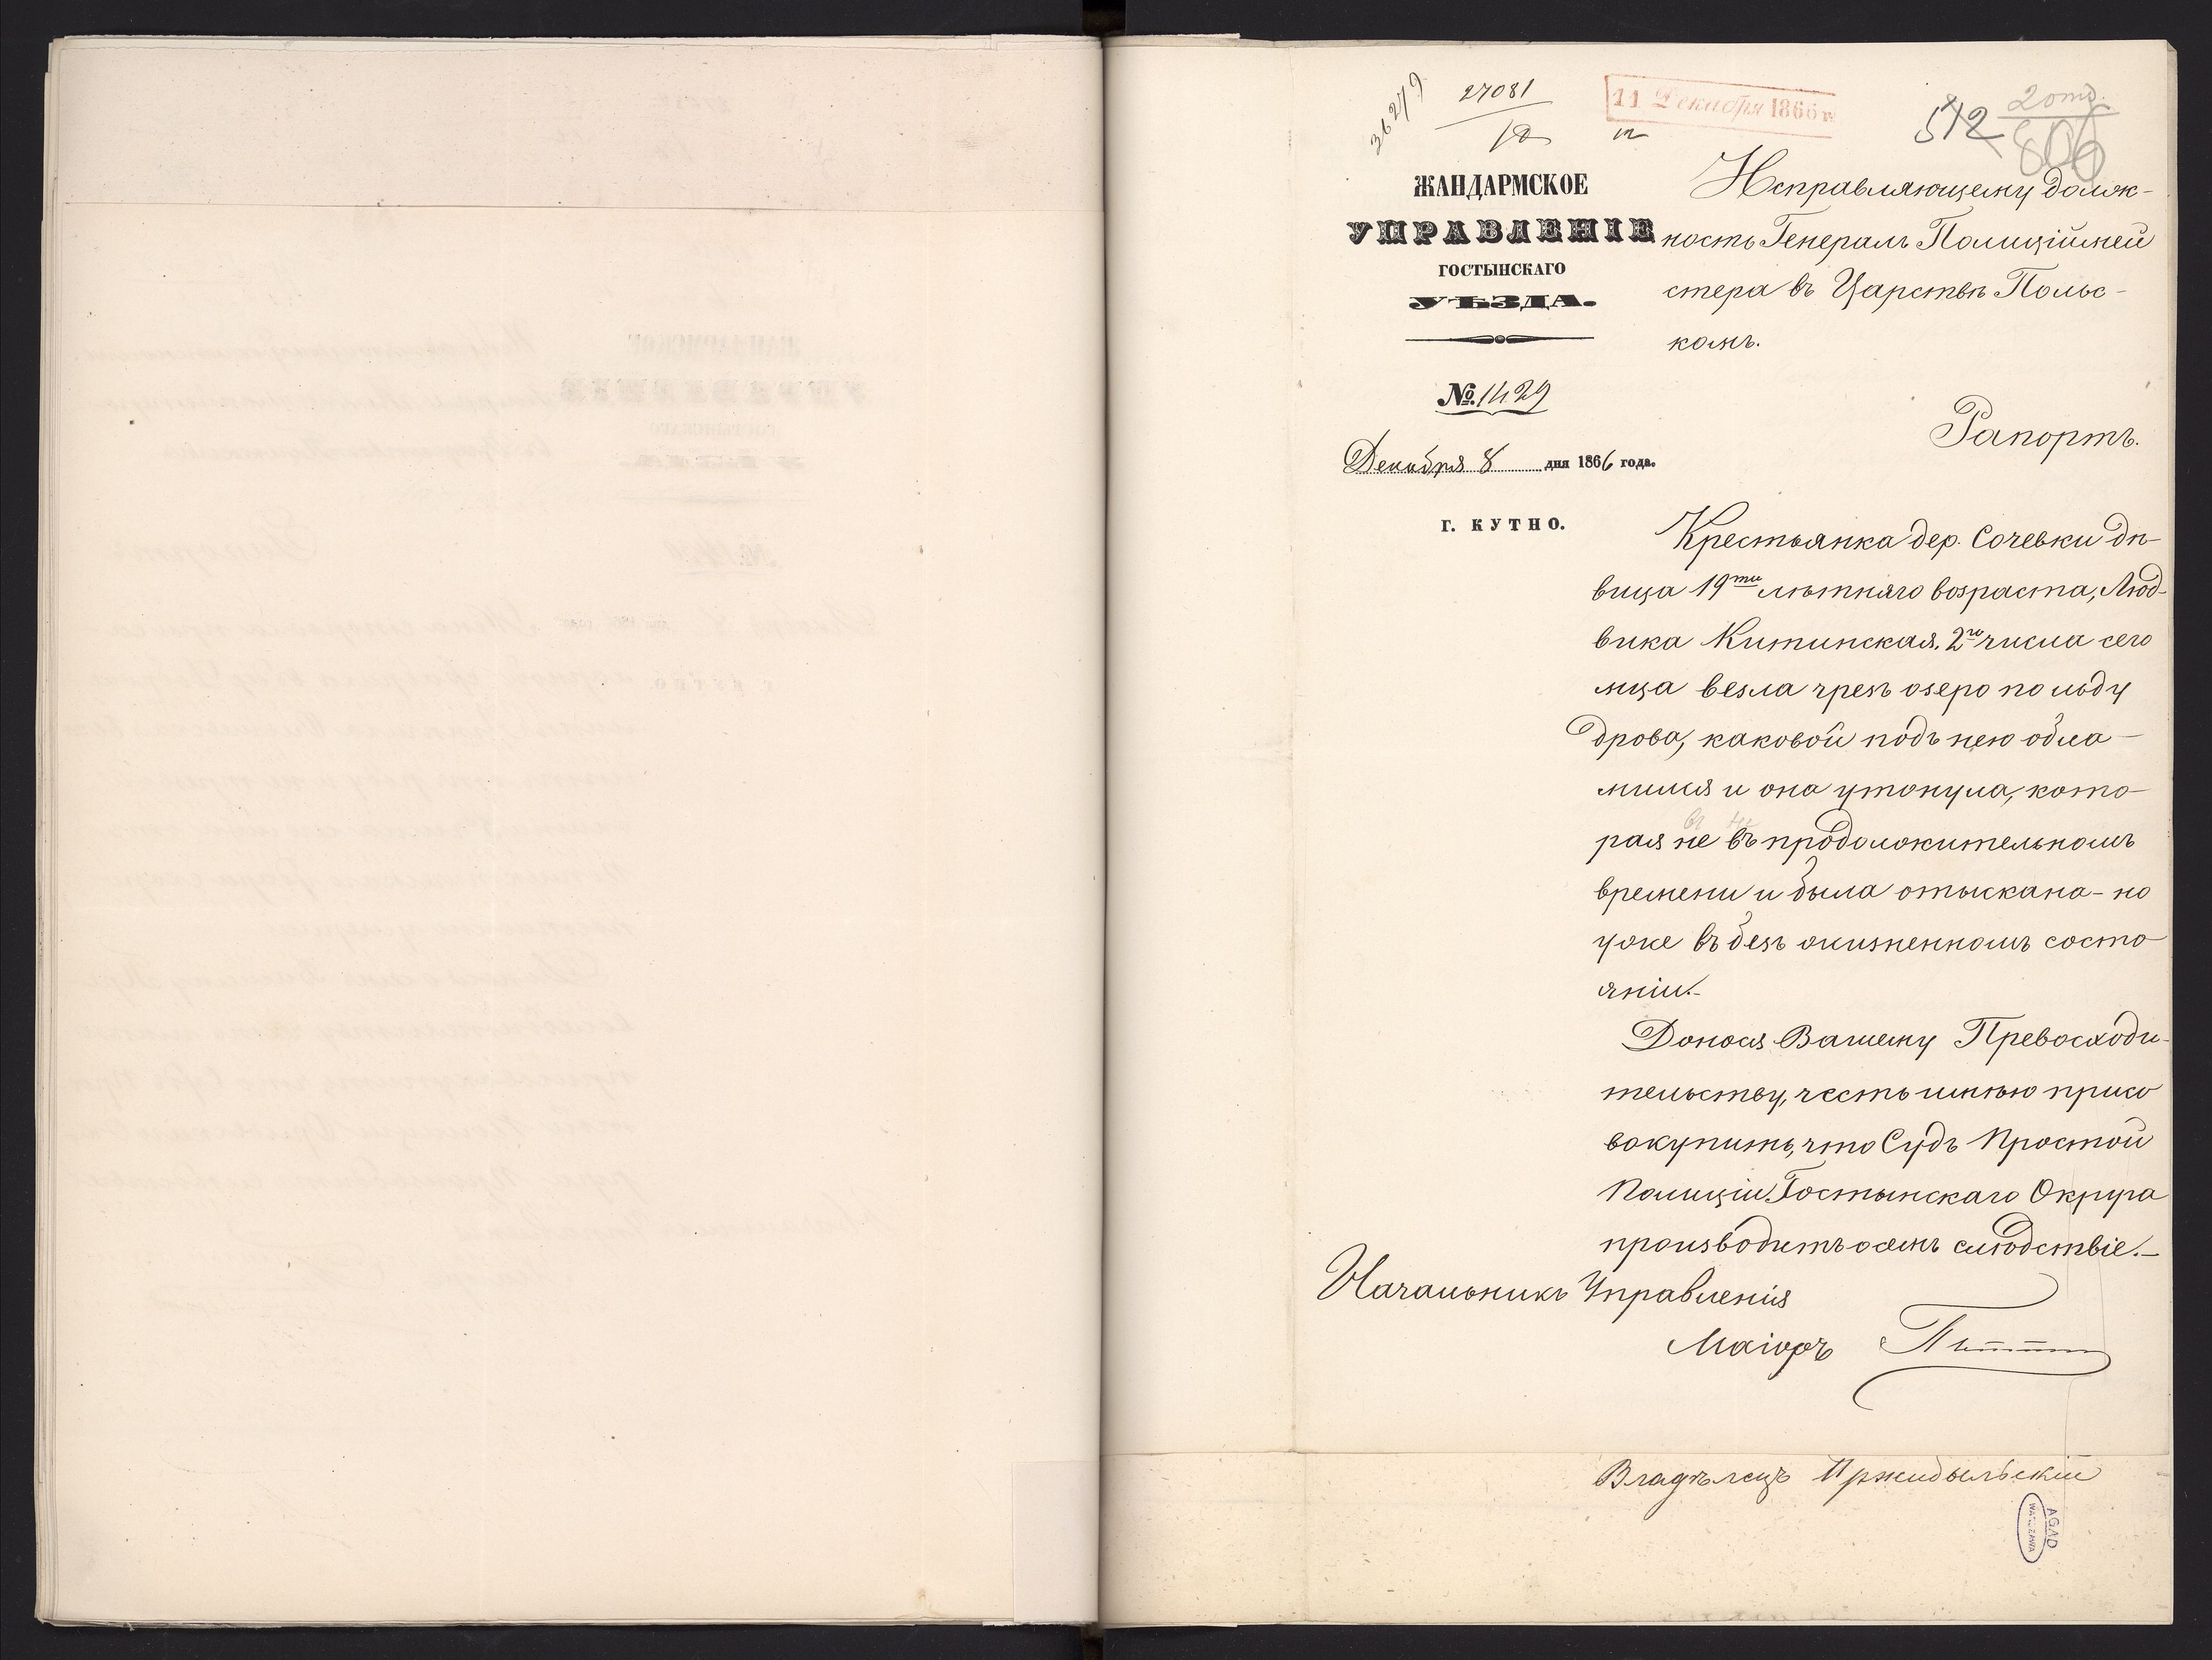 36279
27081
11 Декабря 1866 г.
512
2 отд.
806
ЖАНДАРМСКОЕ
УПРАВЛЕНІЕ
ГОСТЫНСКАГО
УѢЗДА.
№. 1429
Декабря 8 дня 1866 года.
г. КУТНО.
Исправляющему долж-
ность Генералъ Полиціймей
стера въ Царствѣ Польс-
комъ.
Рапортъ.
Крестьянка дер. Сочевки дѣ-
вица 19ти лѣтняго возраста, Люд-
вика Китинская. 2го числа сего
мца везла чрезъ озеро по льду
дрова, каковой подъ нею обла-
мился и она утонула, кото-
рая не въ продолжительномъ
времени и была отыскана - но
уже въ безъ жизненномъ состо-
яніи.-
Донося Вашему Превосходи-
тельству, честь имѣю присо
вокупить, что Судъ Простой
Полиціи Гостынскаго Округа
производитъ о семъ слѣдствіе.-
Начальникъ Управленія
Маіоръ
Владѣлецъ Пржибыльскій
AGAD
WARSZAWA